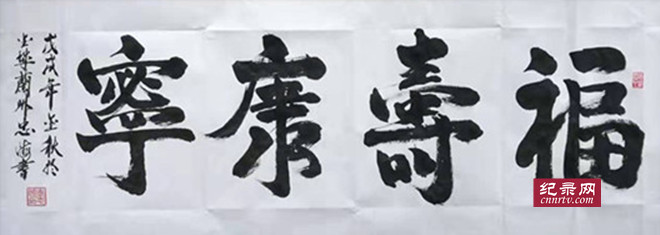 福壽康寧
戊戌年金秋於
金城蘭州忠書
纪录网
cnnrtv.com